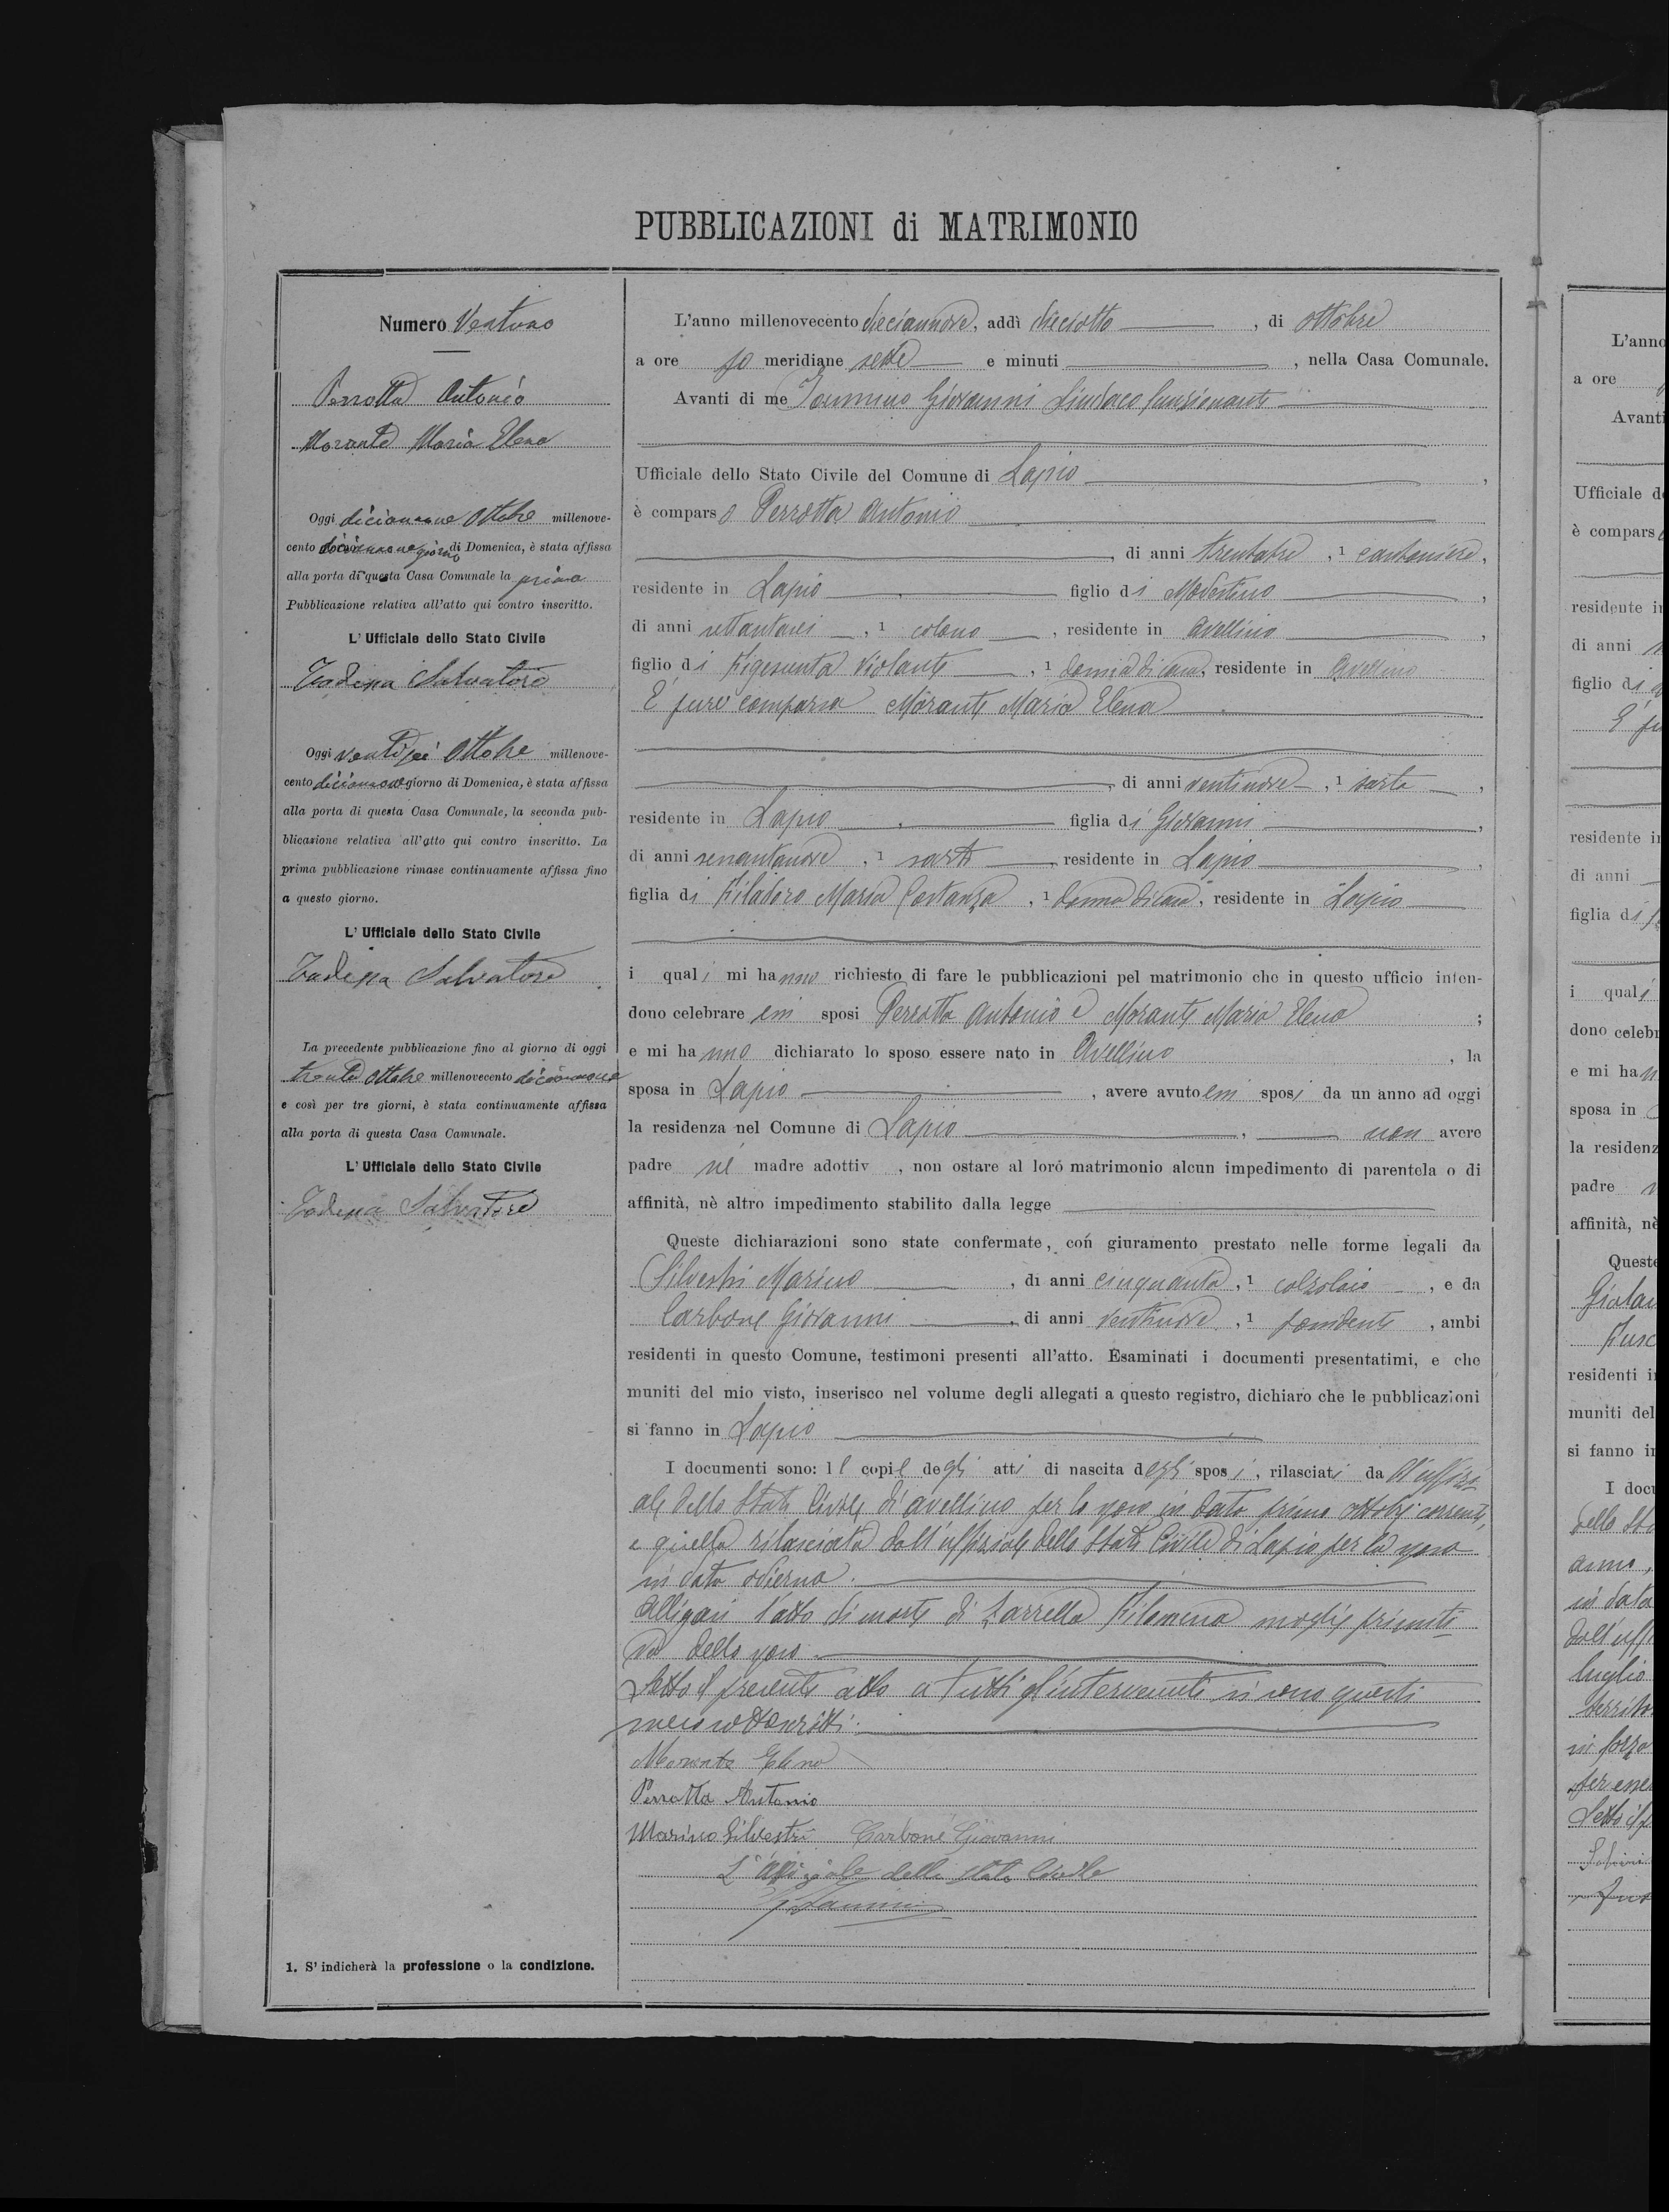 PUBBLICAZIONI di MATRIMONIO
Numero Ventuno
Perrotta Antonio
Morante Maria Elena
Oggi diciannove Ottobre millenove-
cento diciannove giorno di Domenica, è stata affissa
alla porta di questa Casa Comunale la prima
Pubblicazione relativa all'atto qui contro inscritto.
L'Ufficiale dello Stato Civile
Salvatore
Oggi ventisei Ottobre millenove-
cento diciannove giorno di Domenica, è stata affissa
alla porta di questa Casa Comunale, la seconda pub-
blicazione relativa all'atto qui contro inscritto. La
prima pubblicazione rimase continuamente affissa fino
a questo giorno.
L'Ufficiale dello Stato Civile
Salvatore
La precedente pubblicazione fino al giorno di oggi
trenta Ottobre millenovecento diciannove
e così per tre giorni, è stata continuamente affissa
alla porta di questa Casa Camunale.
L'Ufficiale dello Stato Civile
Salvatore
1. S'indicherà la professione o la condizione.
L'anno millenovecento diciannove, addì dieciotto, di ottobre
a ore po meridiane sette e minuti , nella Casa Comunale.
Avanti di me Giovanni Sindaco funzionante
Ufficiale dello Stato Civile del Comune di Lapio ,
è comparso Perrotta Antonio
, di anni trentatre , 1 cantoniere,
residente in Lapio figlio di Modestino ,
di anni settantasei , 1 colono , residente in Avellino ,
figlio di Violante , 1 donna di casa, residente in Avellino
E pure comparsa Morante Maria Elena
, di anni ventinove , 1 sarta ,
residente in Lapio , figlia di Giovanni ,
di anni sessantanove , 1 sarto , residente in Lapio ,
figlia di Filadoro Maria Costanza , 1 donna di casa, residente in Lapio
i quali mi hanno richiesto di fare le pubblicazioni pel matrimonio che in questo ufficio inten-
dono celebrare essi sposi Perrotta Antonio e Morante Maria Elena ;
e mi hanno dichiarato lo sposo essere nato in Avellino , la
sposa in Lapio , avere avuto essi sposi da un anno ad oggi
la residenza nel Comune di Lapio , non avere
padre nè madre adottiv , non ostare al loro matrimonio alcun impedimento di parentela o di
affinità, nè altro impedimento stabilito dalla legge
Queste dichiarazioni sono state confermate, con giuramento prestato nelle forme legali da
Silvestri Marino , di anni cinquanta , 1 calzolaio , e da
Carbone Giovanni , di anni ventinove , 1 possidente , ambi
residenti in questo Comune, testimoni presenti all'atto. Esaminati i documenti presentatimi, e che
muniti del mio visto, inserisco nel volume degli allegati a questo registro, dichiaro che le pubblicazioni
si fanno in Lapio
I documenti sono: le copie degli atti di nascita degli sposi, rilasciati da ll'uffizi-
ale dello Stato Civile di Avellino per lo sposo in data primo ottobre corrente,
e quella rilasciata dall'uffiziale dello Stato Civile di Lapio per la sposa
in data odierna.
l'atto di morte di Filomena moglie primiti-
va dello sposo.
Letto il presente atto a tutti gl'intervenuti si sono questi
meco sottoscritti.
Morante Elena
Perrotta Antonio
Marino Silvestri Carbone Giovanni
L'Uffiziale dello Stato Civile
L'anno
a ore
Avanti
Ufficiale d
è compars
residente in
di anni
figlio di
E pu
residente in
di anni
figlia di
i quali
dono celebr
e mi han
sposa in
la residenz
padre
affinità, nè
Queste
residenti i
muniti del
si fanno in
I docu
dello Sta
anno,
in data
dall'uffi
luglio
in forza
per esse
Letto il p